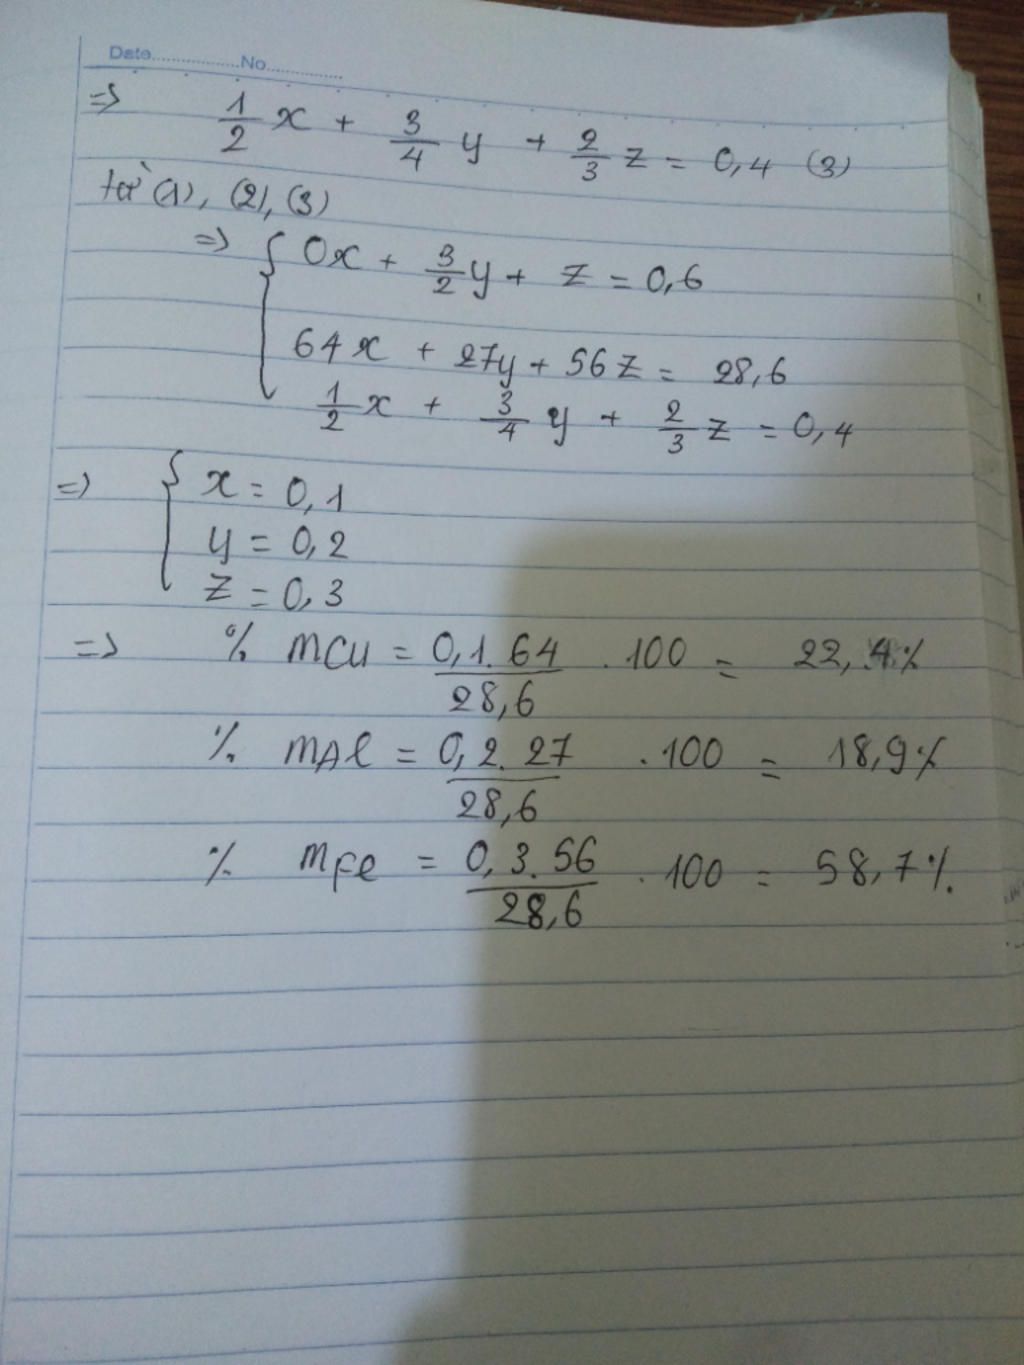 Date.................No...............
=> 1/2 x + 3/4 y + 2/3 z = 0,4 (3)
từ (1), (2), (3)
=> { 0x + 3/2 y + z = 0,6
64x + 27y + 56z = 28,6
1/2 x + 3/4 y + 2/3 z = 0,4
=> { x = 0,1
y = 0,2
z = 0,3
=> % mCu = 0,1.64/28,6 . 100 = 22,4%
% mAl = 0,2.27/28,6 . 100 = 18,9%
% mFe = 0,3.56/28,6 . 100 = 58,7%.